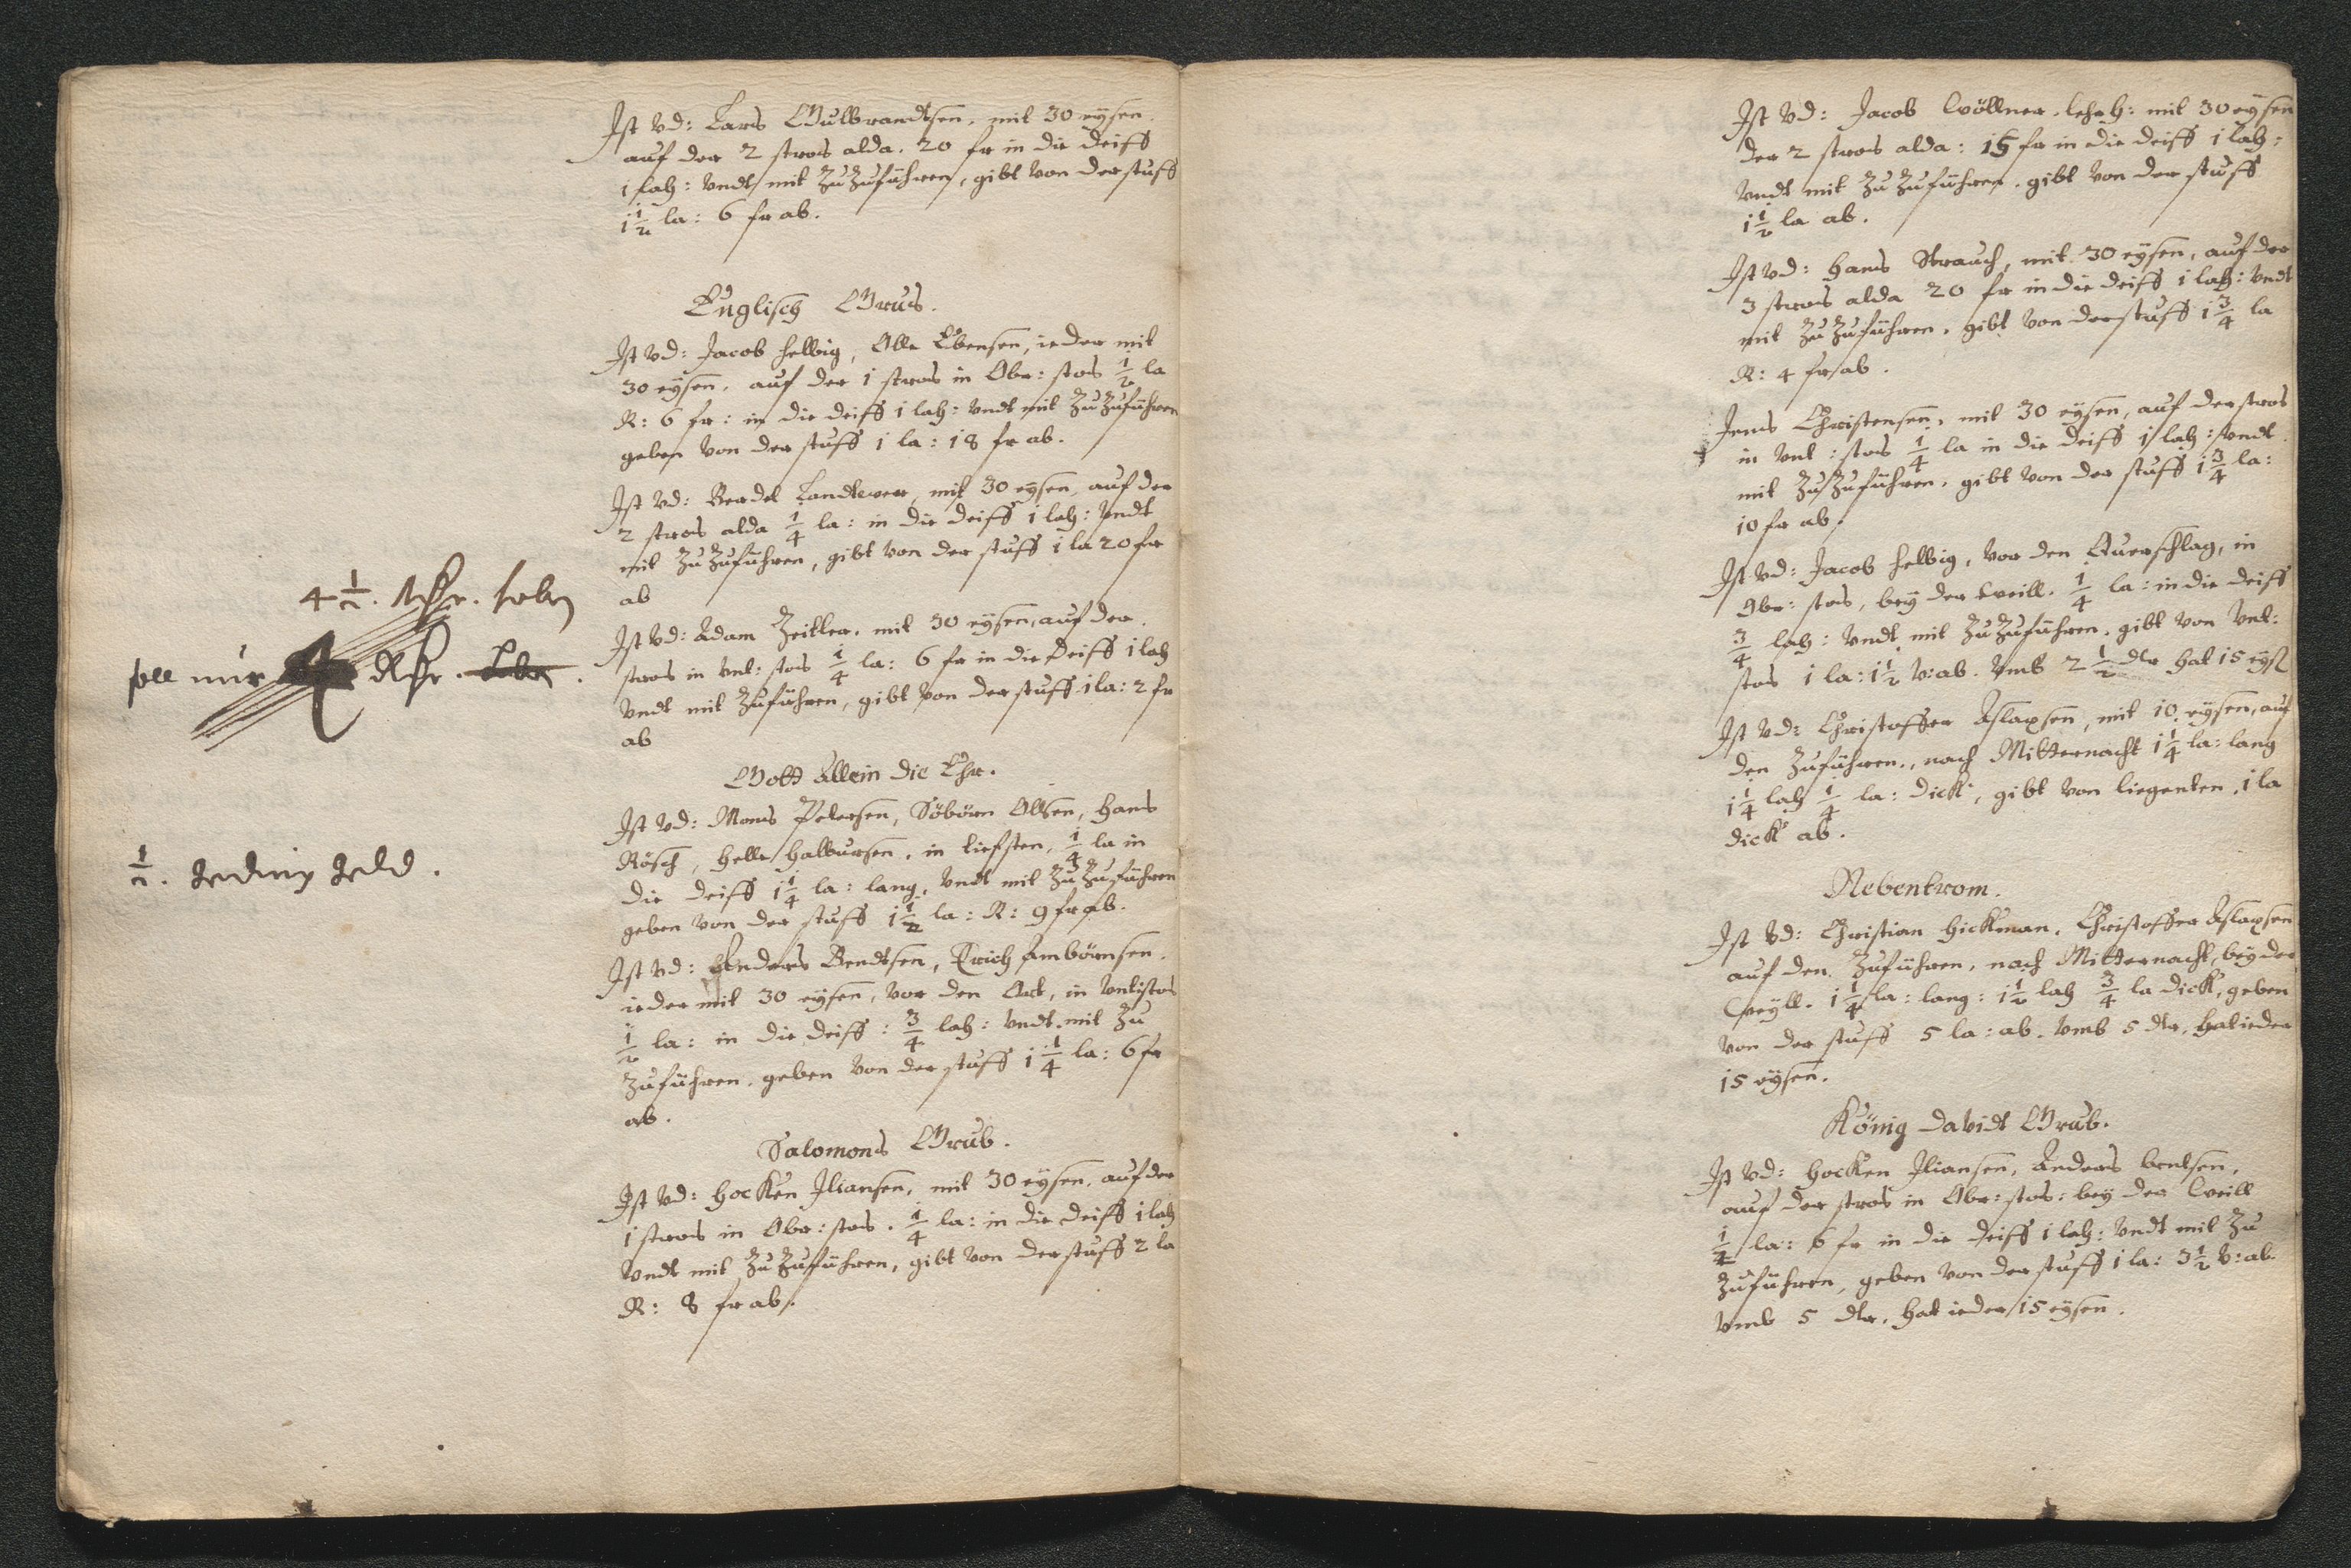 Ist vd: Lars Gulbrandtsen, mit 30 eysen.
auf der 2 stros alda. 20 fr in die deiff
1 lah: vndt mit ZuZuführen, gibt von der stuff
1 1/2 la: 6 fr ab.
Englisch Grus.
Ist vd: Jacob helbig, Olle Ebensen, ieder mit
30 eysen, auf der 1 stros in Obr: stos 1/2 la
R: 6 fr: in die deiff 1 lah: vndt mit ZuZuführen
geben von der stuff 1 la: 18 fr ab.
Ist vd: Berdel Landtwer, mit 30 eysen, auf der
2 stros alda 1/4 la: in die deiff 1 lah: vndt
mit ZuZuführen, gibt von der stuff 1 la 20 fr
ab
4 1/2.
Ist vd: Adam Zeitler, mit 30 eysen, auf der
soll nur
stros in vnt: stos 1/4 la: 6 fr in die deiff 1 lah
vndt mit Zuführen, gibt von der stuff 1 la: 2 fr
ab
Gott allein die Ehr.
Ist vd: Mons Petersen, Söbörn Olsen, hans
Rösch, helle halbursen, in tiefsten, 1/4 la in
1/2. geding geld.
die deiff 1 1/4 la: lang, vndt mit ZuZuführen
geben von der stuff 1 1/2 la: R: 9 fr ab.
Ist vd: Anders Bendtsen, Erich Ambörnsen,
ieder mit 30 eysen, vor den Ort, in vnt:stos
1/2 la: in die deiff: 3/4 lah: vndt mit Zu
Zuführen, geben von der stuff 1 1/4 la: 6 fr
ab.
Salomons Grub.
Ist vd: hocken Iliansen, mit 30 eysen, auf der
1 stros in Obr: stos. 1/4 la: in die deiff 1 lah
vndt mit ZuZuführen, gibt von der stuff 2 la
R: 8 fr ab.
Ist vd: Jacob Cvöllner, lehrh: mit 30 eysen
der 2 stros alda: 15 fr in die deiff 1 lah:
vndt mit ZuZuführen, gibt von der stuff
1 1/2 la ab.
Ist vd: hans Strauch, mit 30 eysen, auf der
3 stros alda 20 fr in die deiff 1 lah: vndt
mit ZuZuführen, gibt von der stuff 1 3/4 la
R: 4 fr ab.
Jens Christensen, mit 30 eysen, auf der stros
in vnt: stos 1/4 la in die deiff 1 lah: vndt
mit ZuZuführen, gibt von der stuff 1 3/4 la:
10 fr ab.
Ist vd: Jacob helbig, vor den Querschlag, in
Obr: stos, bey der Cveill. 1/4 la: in die deiff
3/4 lah: vndt mit ZuZuführen, gibt von vnt:
stos 1 la: 1 1/2 v: ab. vmb 2 1/2 dlr hat 15 eyß
Ist vd: Christoffer Aslaxsen, mit 10 eysen, auf
den Zuführen, nach Mitternacht 1 1/4 la: lang
1 1/4 lah 1/4 la: dick, gibt von liegenten, 1 la
dick ab.
Nebentrom.
Ist vd: Christian hickman, Christoffer Aslaxsen
auf den Zuführen, nach Mitternacht, bey der
Cveyll. 1 1/4 la: lang: 1 1/2 lah 3/4 la dick, geben
von der stuff 5 la: ab. vmb 5 dlr, hat ieder
15 eysen.
König davidt Grub.
Ist vd: hocken Iliansen, Anders bentsen,
auf der stros in Obr: stos: bey der Cveill
1/4 la: 6 fr in die deiff 1 lah: vndt mit Zu
Zuführen, geben von der stuff 1 la: 3 1/2 v: ab.
vmb 5 dlr, hat ieder 15 eysen.